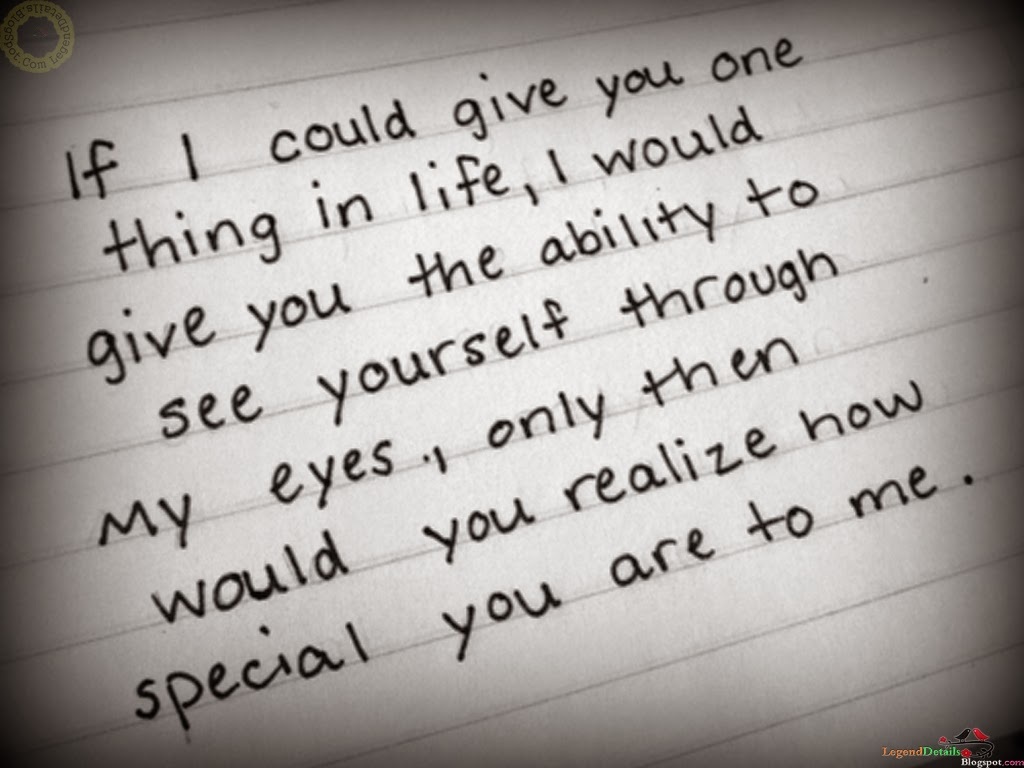 LegendDetails.Blogspot.Com
If I could give you one
thing in life, I would
give you the ability to
see yourself through
my eyes., only then
would you realize how
special you are to me.
LegendDetails
Blogspot.com